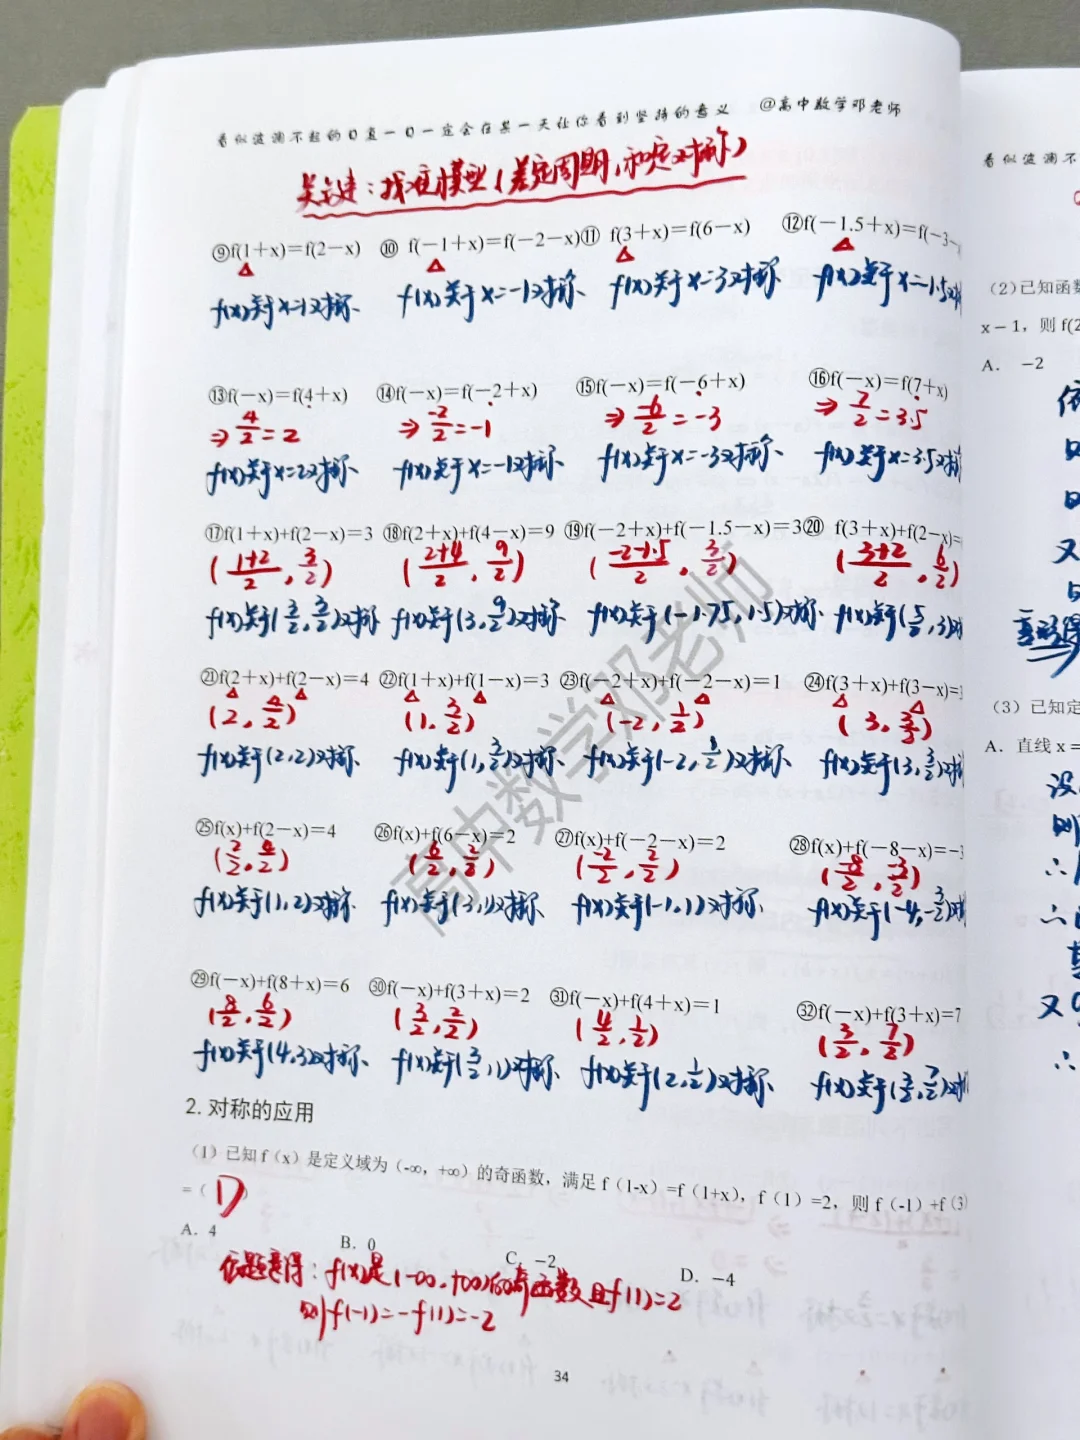 看似波澜不起的日复一日一定会在某一天让你看到坚持的意义 @高中数学邓老师
关键：找准模型（差定周期，和定对称）
⑨f(1+x)=f(2−x) ⑩ f(−1+x)=f(−2−x)⑪ f(3+x)=f(6−x) ⑫f(−1.5+x)=f(−3−
f(x)关于x=1对称、 f(x)关于x=−1对称、 f(x)关于x=3对称、 f(x)关于x=−1.5对
⑬f(−x)=f(4+x) ⑭f(−x)=f(−2+x) ⑮f(−x)=f(−6+x) ⑯f(−x)=f(7+x)
⇒4/2=2 ⇒−2/2=−1 ⇒−6/2=−3 ⇒7/2=3.5
f(x)关于x=2对称、 f(x)关于x=−1对称、 f(x)关于x=−3对称、 f(x)关于x=3.5对称
⑰f(1+x)+f(2−x)=3 ⑱f(2+x)+f(4−x)=9 ⑲f(−2+x)+f(−1.5−x)=3⑳ f(3+x)+f(2−x)=
(1+2/2, 3/2) (2+4/2, 9/2) (−2−1.5/2, 3/2) (3+2/2, 6/2)
f(x)关于(3/2,3/2)对称 f(x)关于(3,9/2)对称、 f(x)关于(−1.75,1.5)对称、 f(x)关于(5/2,3)对
㉑f(2+x)+f(2−x)=4 ㉒f(1+x)+f(1−x)=3 ㉓f(−2+x)+f(−2−x)=1 ㉔f(3+x)+f(3−x)=
(2, 4/2) (1, 3/2) (−2, 1/2) (3, 3/2)
f(x)关于(2,2)对称、 f(x)关于(1,3/2)对称、 f(x)关于(−2,1/2)对称、 f(x)关于(3,3/2)对
㉕f(x)+f(2−x)=4 ㉖f(x)+f(6−x)=2 ㉗f(x)+f(−2−x)=2 ㉘f(x)+f(−8−x)=−3
(2/2, 4/2) (6/2, 2/2) (−2/2, 2/2) (−8/2, −3/2)
f(x)关于(1,2)对称、 f(x)关于(3,1)对称、 f(x)关于(−1,1)对称、 f(x)关于(−4,−3/2)对
㉙f(−x)+f(8+x)=6 ㉚f(−x)+f(3+x)=2 ㉛f(−x)+f(4+x)=1 ㉜f(−x)+f(3+x)=7
(8/2, 6/2) (3/2, 2/2) (4/2, 1/2) (3/2, 7/2)
f(x)关于(4,3)对称、 f(x)关于(3/2,1)对称、 f(x)关于(2,1/2)对称、 f(x)关于(3/2,7/2)对
2. 对称的应用
（1）已知 f（x）是定义域为（-∞，+∞）的奇函数，满足 f（1-x）=f（1+x），f（1）=2，则 f（-1）+f（3）
=（ D ）
A．4 B．0 C．−2 D．−4
依题意得：f(x)是(−∞,+∞)的奇函数且f(1)=2
则f(−1)=−f(1)=−2
34
高中数学邓老师
看似波澜不
（2）已知函数
x−1，则 f(2
A． −2
依
又
（3）已知定
A．直线 x=
设
则
∴
∴
又
∴